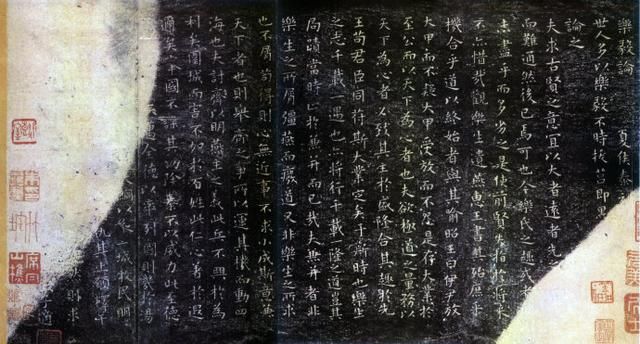 樂毅論
夏侯泰
世人多以樂毅不時拔莒即墨
論之
夫求古賢之意宜以大者遠者先之
而難通然後已焉可也今樂氏之趣或者
未盡乎而多劣之是使前賢失指於將來
不亦惜哉觀樂生遺燕惠王書其殆庶乎
機合乎道以終始者與其喻昭王曰伊尹放
大甲而不疑大甲受放而不怨是存大業於
至公而以天下為心者也夫欲極道之量務以
天下為心者必致其主於盛隆合其趣於先
王苟君臣同符斯大業定矣于斯時也樂生
之志千載一遇也亦將行千載一隆之道豈其
局蹟當時止於兼并而已哉夫兼并者非
樂生之所屑彊燕而廢道又非樂生之所求
也不屑苟得則心無近事不求小成斯意兼
天下者也則舉齊之事所以運其機而動四
海也夫討齊以明燕主之義此兵不興於為
利矣圍城而害不加於百姓此仁心著於遐
邇矣舉國不謀其功除暴不以威力此至德
全德以率列國則幾於湯
以縱二城收民明